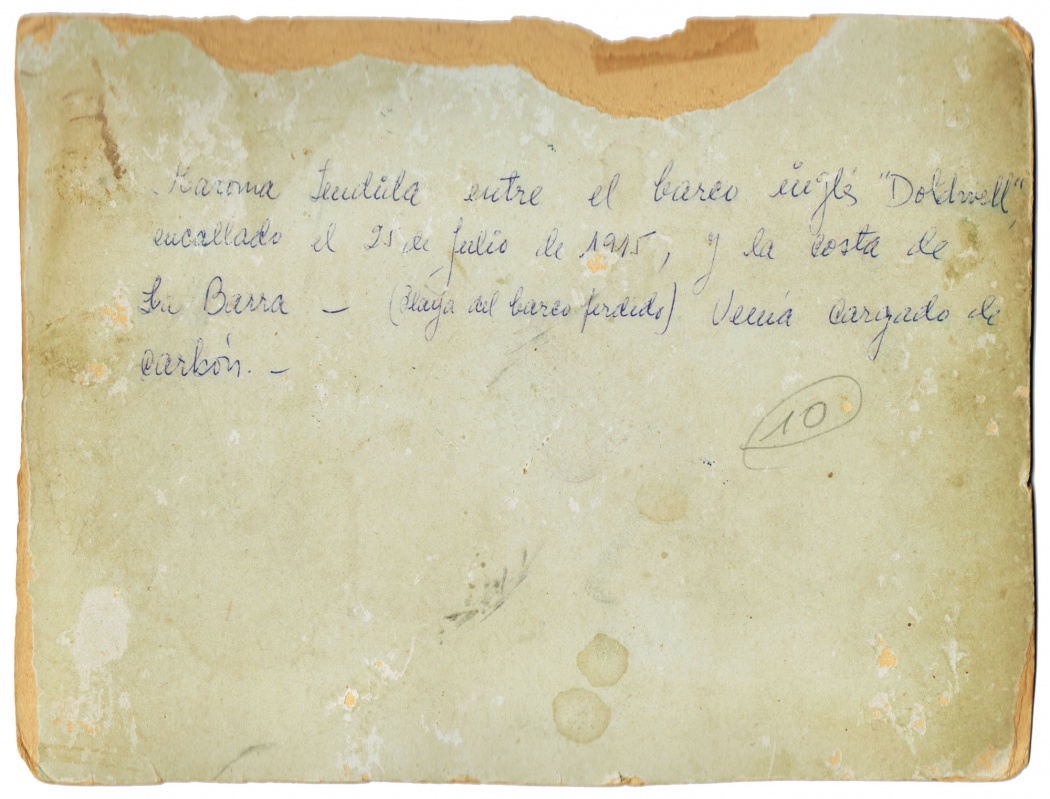 Maroma tendida entre el barco inglés "Doldwell",
encallado el 25 de Julio de 1915, y la costa de
La Barra — (Playa del barco perdido) Venía cargado de
carbón. —
10